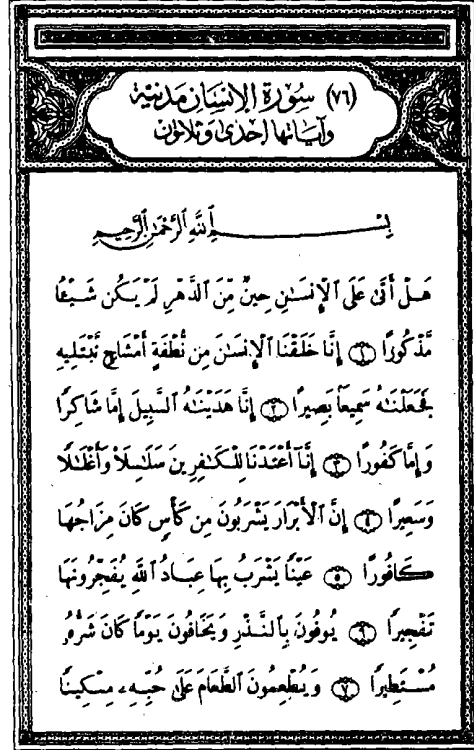 (٧٦) سُورَةُ الْإِنْسَانِ مَدَنِيَّة
وَآيَاتُهَا إِحْدَى وَثَلَاثُونَ
بِسْمِ ٱللَّهِ ٱلرَّحْمَٰنِ ٱلرَّحِيمِ
هَلْ أَتَىٰ عَلَى ٱلْإِنسَٰنِ حِينٌ مِّنَ ٱلدَّهْرِ لَمْ يَكُن شَيْـًٔا
مَّذْكُورًا ١ إِنَّا خَلَقْنَا ٱلْإِنسَٰنَ مِن نُّطْفَةٍ أَمْشَاجٍ نَّبْتَلِيهِ
فَجَعَلْنَٰهُ سَمِيعًۢا بَصِيرًا ٢ إِنَّا هَدَيْنَٰهُ ٱلسَّبِيلَ إِمَّا شَاكِرًا
وَإِمَّا كَفُورًا ٣ إِنَّآ أَعْتَدْنَا لِلْكَٰفِرِينَ سَلَٰسِلَا۟ وَأَغْلَٰلًا
وَسَعِيرًا ٤ إِنَّ ٱلْأَبْرَارَ يَشْرَبُونَ مِن كَأْسٍ كَانَ مِزَاجُهَا
كَافُورًا ٥ عَيْنًا يَشْرَبُ بِهَا عِبَادُ ٱللَّهِ يُفَجِّرُونَهَا
تَفْجِيرًا ٦ يُوفُونَ بِٱلنَّذْرِ وَيَخَافُونَ يَوْمًا كَانَ شَرُّهُۥ
مُسْتَطِيرًا ٧ وَيُطْعِمُونَ ٱلطَّعَامَ عَلَىٰ حُبِّهِۦ مِسْكِينًا